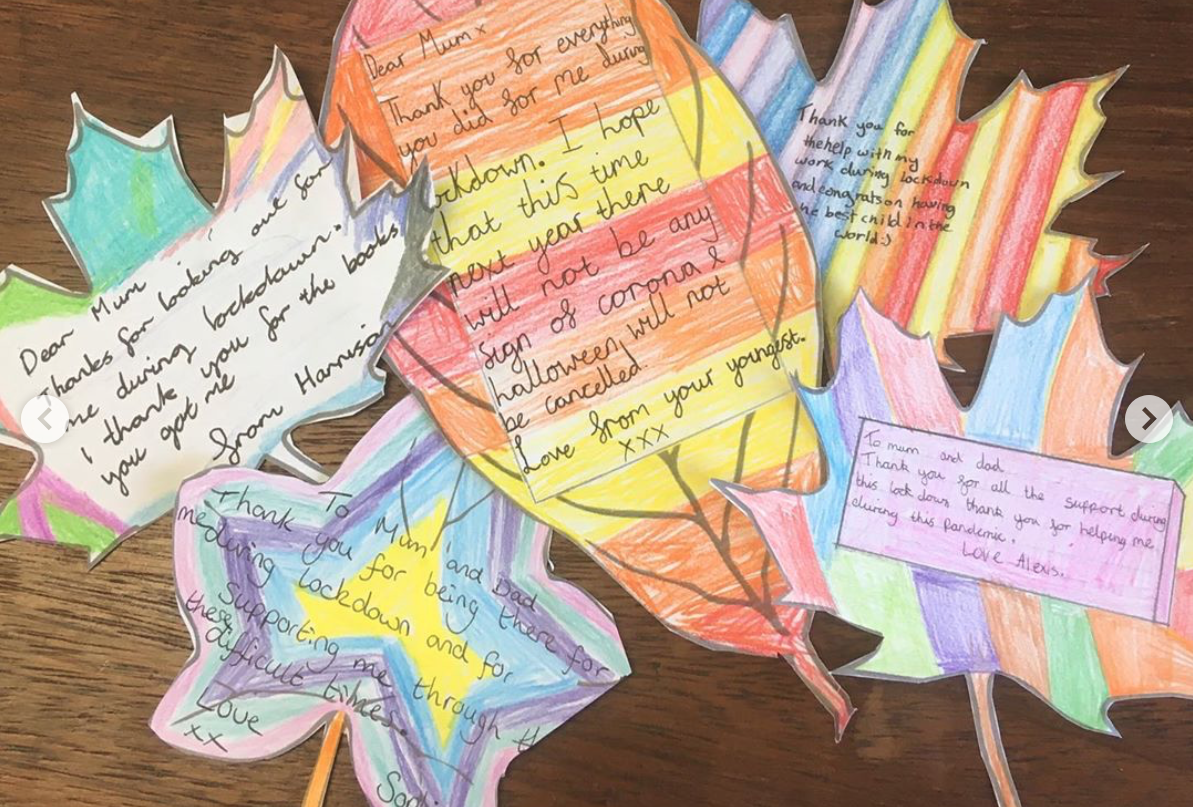 Dear Mum
Thanks for looking out for
me during lockdown.
i thank you for the books
you got me
from Harrison
Dear Mum x
Thank you for everything
you did for me during
lockdown. I hope
that this time
next year there
will not be any
sign of corona &
halloween will not
be cancelled.
Love from your youngest.
xxx
Thank you for
the help with my
work during lockdown
and congrats on having
he best child in the
world :)
To Mum and Dad
Thank you for being there for
me during lockdown and for
supporting me through th
these
difficult times.
Love
xx
To mum and dad
Thank you for all the support during
this lockdown thank you for helping me
during this pandemic.
Love Alexis.